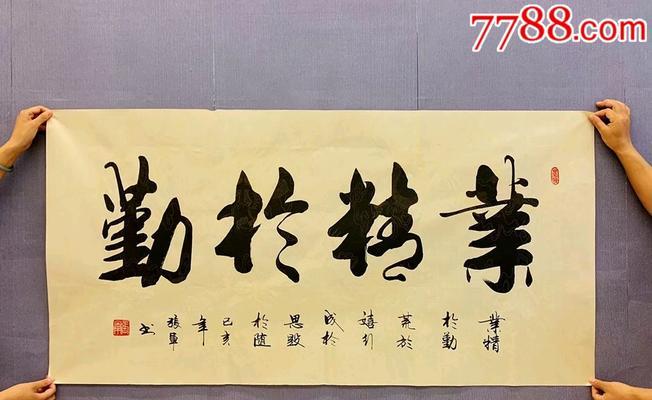 7788.com
業精於勤
業精
於勤
荒於
嬉行
成於
思毁
於随
己亥
年
張軍
书